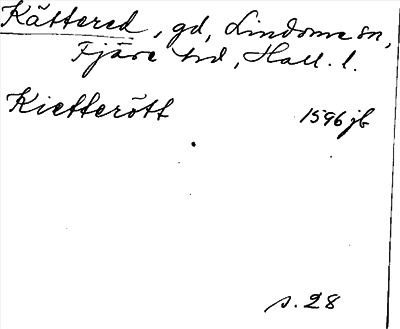 Kättered, gd, Lindome sn,
Fjäre hd, Hall. l.
Kietterött 1596 jb
s. 28